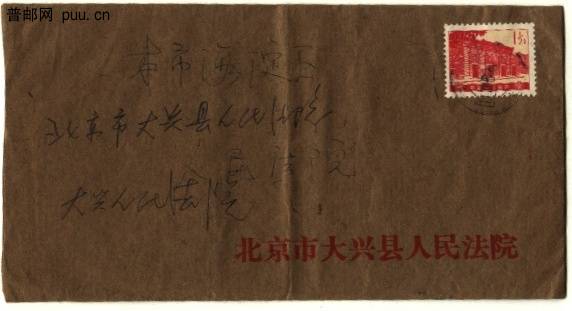 普邮网 puu.cn
本市海淀区
北京市大兴县人民法院
民法院
大兴人民法院
北京市大兴县人民法院